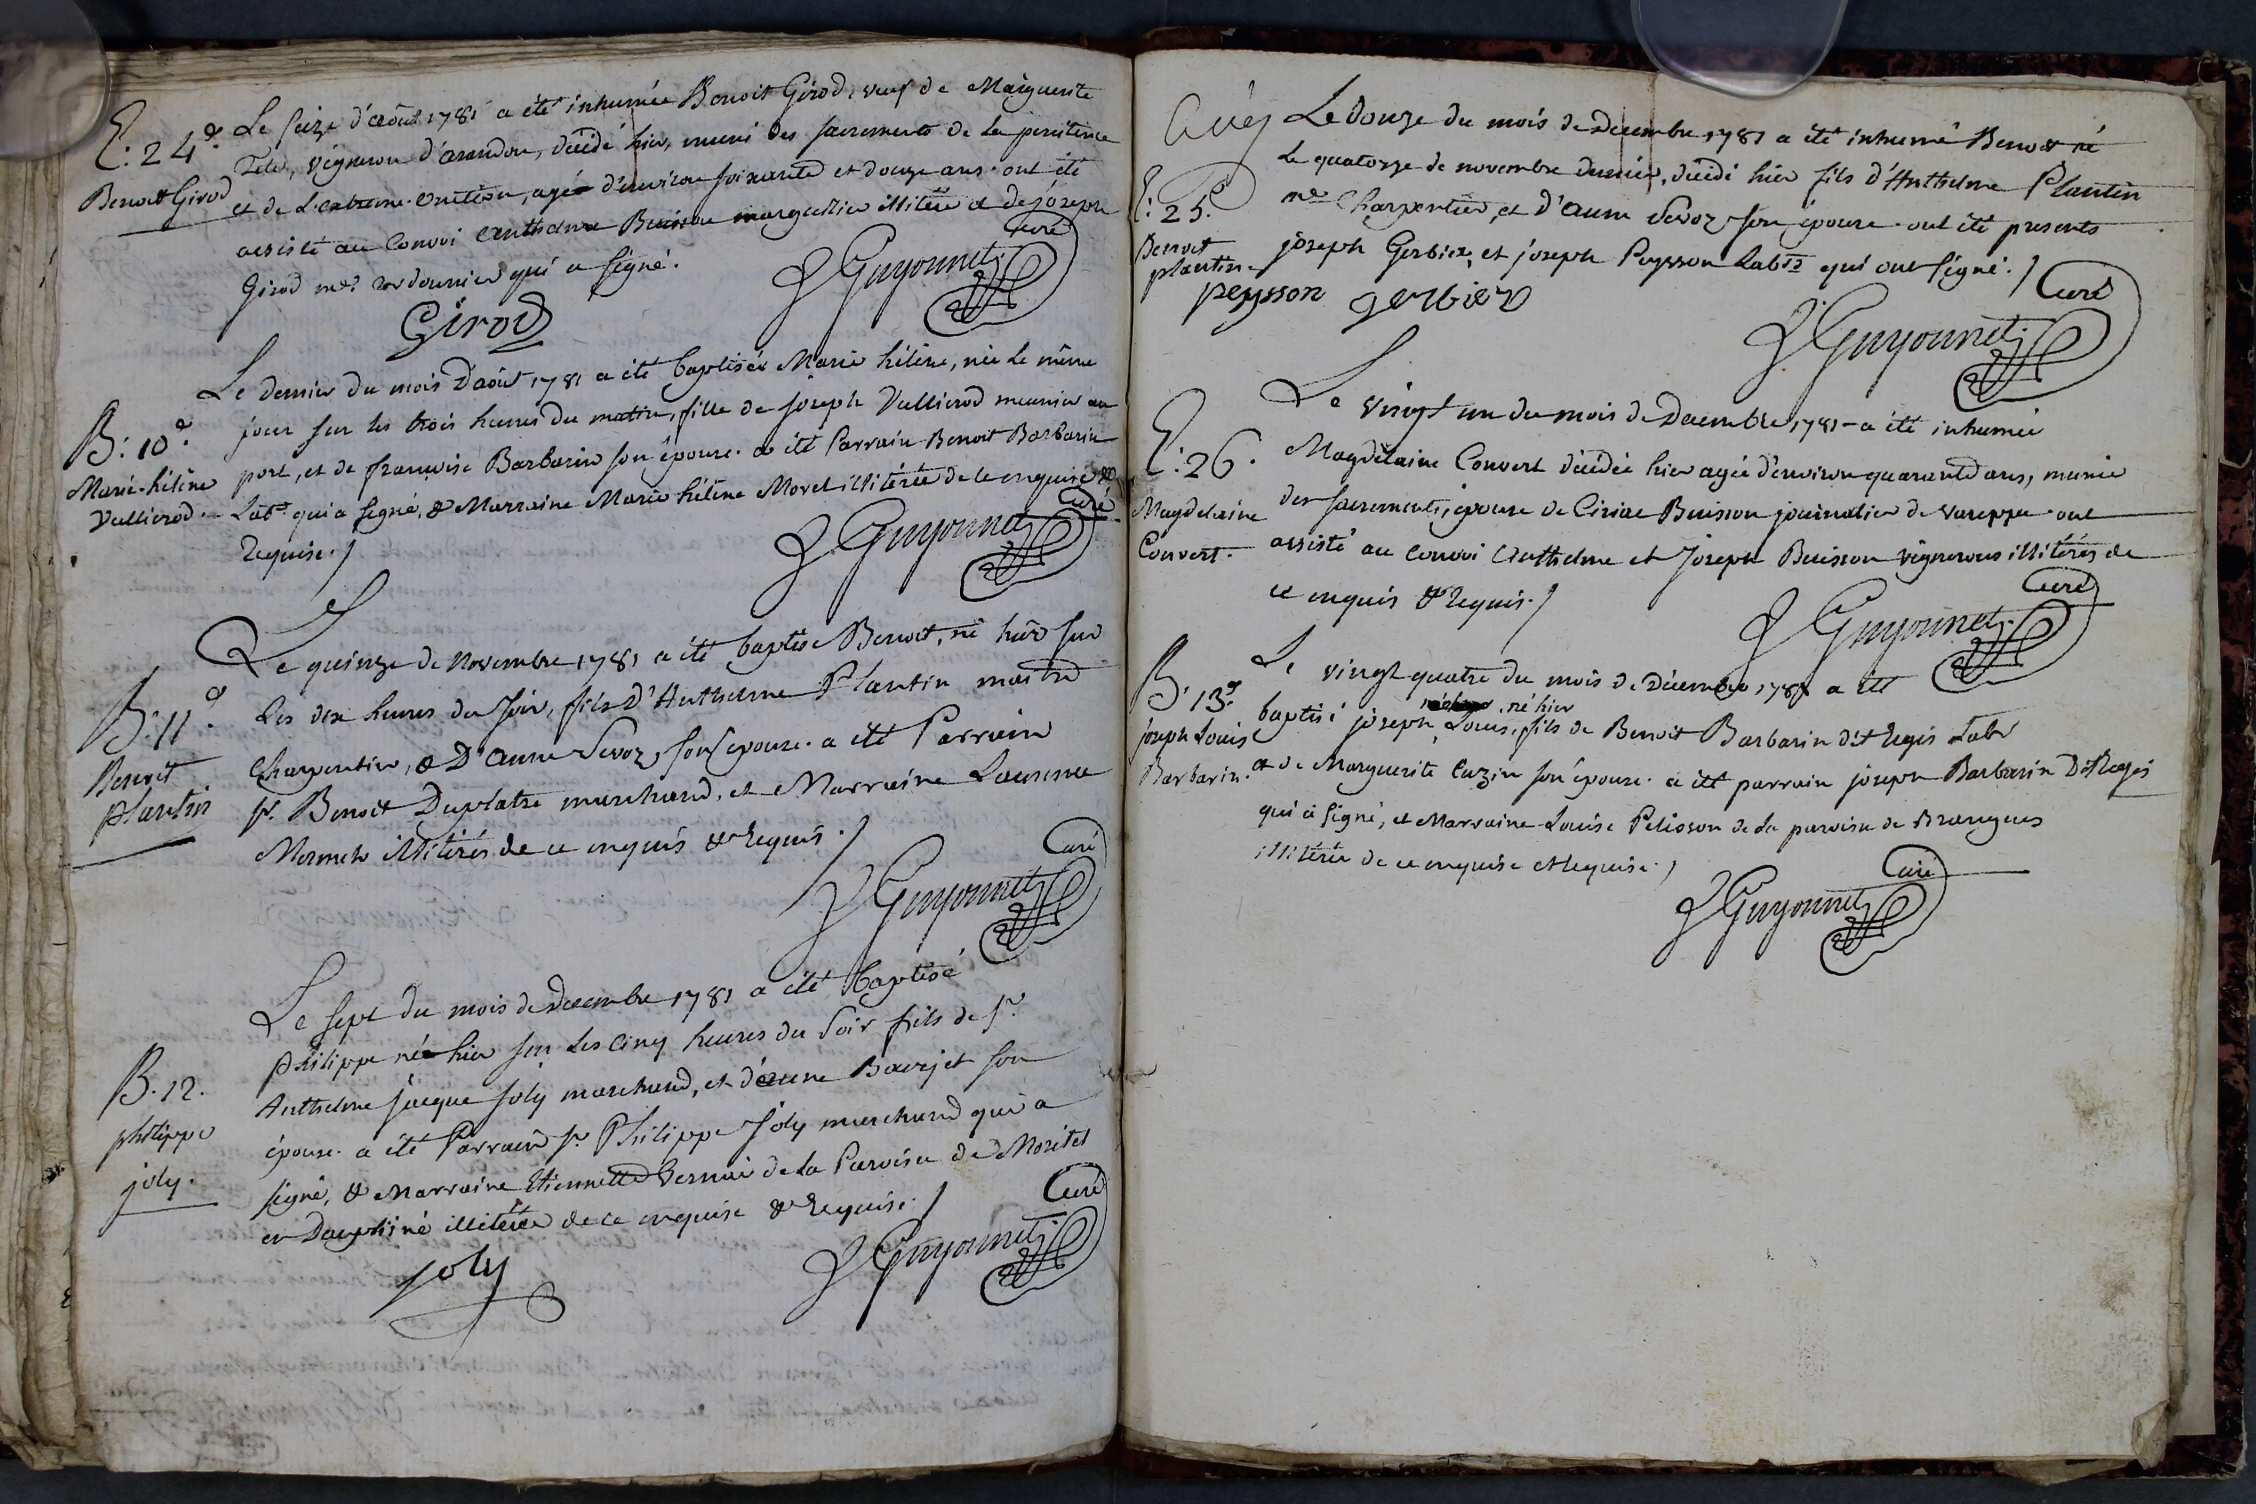 E: 24e.
Benoit Girod
Le seize d'août 1781 a été inhumée Benoit Girod, veuf de Marguerite
vigneron d'arandon, décédé hier, muni des sacrements de la penitence
et de l'extreme-onction, agée d'environ soixante et douze ans. ont été
assisté au Convoi Anthelme Buisson marguillier illitéré et de joseph
Girod me. cordonnier qui a signé.
Girod
J Guyonnet. Curé
B: 10e.
Marie-héléne
Vullierod.
Le dernier du mois d'août 1781 a été baptisée Marie héléne, née le même
jour sur les trois heures du matin, fille de joseph Vullierod meunier au
port, et de françoise Barbarin son épouse. a été Parrain Benoit Barbarin
Labr. qui a signé, & Marraine Marie héléne Morel illitérée de ce enquise &
Requise./
J. Guyonnet Curé
B: 11e.
Benoit
plantin
Le quinze de Novembre 1781 a été baptisé Benoit, né hier sur
Les dix heures du soir, fils d'Anthelme Plantin maitre
Charpentier, & D'anne Sevoz son épouse. a été Parrain
sr. Benoit Duplatre marchand, et Marraine Laurence
illitérés de ce enquis & Requis./
J Guyonnet Curé
B. 12.
philippe
joly.
Le sept du mois de Decembre 1781 a été baptisé
Philippe né hier sur les cinq heures du soir fils de sr.
Anthelme jacque joly marchand, et d'anne Bavejet son
épouse. a été Parrain sr Philippe joly marchand qui a
signé, & Marraine Etiennette Vernai de la Paroisse de Moretel
en Dauphiné illitérée de ce enquise & Requise./
Joly
J Guyonnet Curé
E: 25.
Benoit
plantin.
Le Douze du mois de Decembre 1781 a été inhumé Benoit né
Le quatorze de novembre dernier, décédé hier fils d'Anthelme Plantin
me Charpentier, et d'anne Sevoz son épouse. ont été presents
joseph Gerbier, et joseph Peysson Labrs qui ont signé./
peysson gerbier
J. Guyonnet. Curé
E: 26.
Magdelaine
Convert.
Le vingt un du mois de Decembre 1781 a été inhumée
Magdelaine Convert décédée hier agée d'environ quarante ans, munie
des sacrements, épouse de Ciriac Buisson journalier de vareppe. ont
assisté au convoi Anthelme et Joseph Buisson vignerons illitérés de
ce enquis & Requis./
J Guyonnet. Curé
B. 13e.
joseph Louis
Barbarin.
Le vingt quatre du mois de Décembre 1781 a été
né hier
baptisé joseph Louis, fils de Benoit Barbarin dit Regis Labr
et de Marguerite Cuzin son épouse. a été parrain joseph Barbarin Dit Regis
qui a signé, et Marraine Louise Pelisson de la paroisse de Brangues
illitérée de ce enquise et Requise./
J Guyonnet Curé